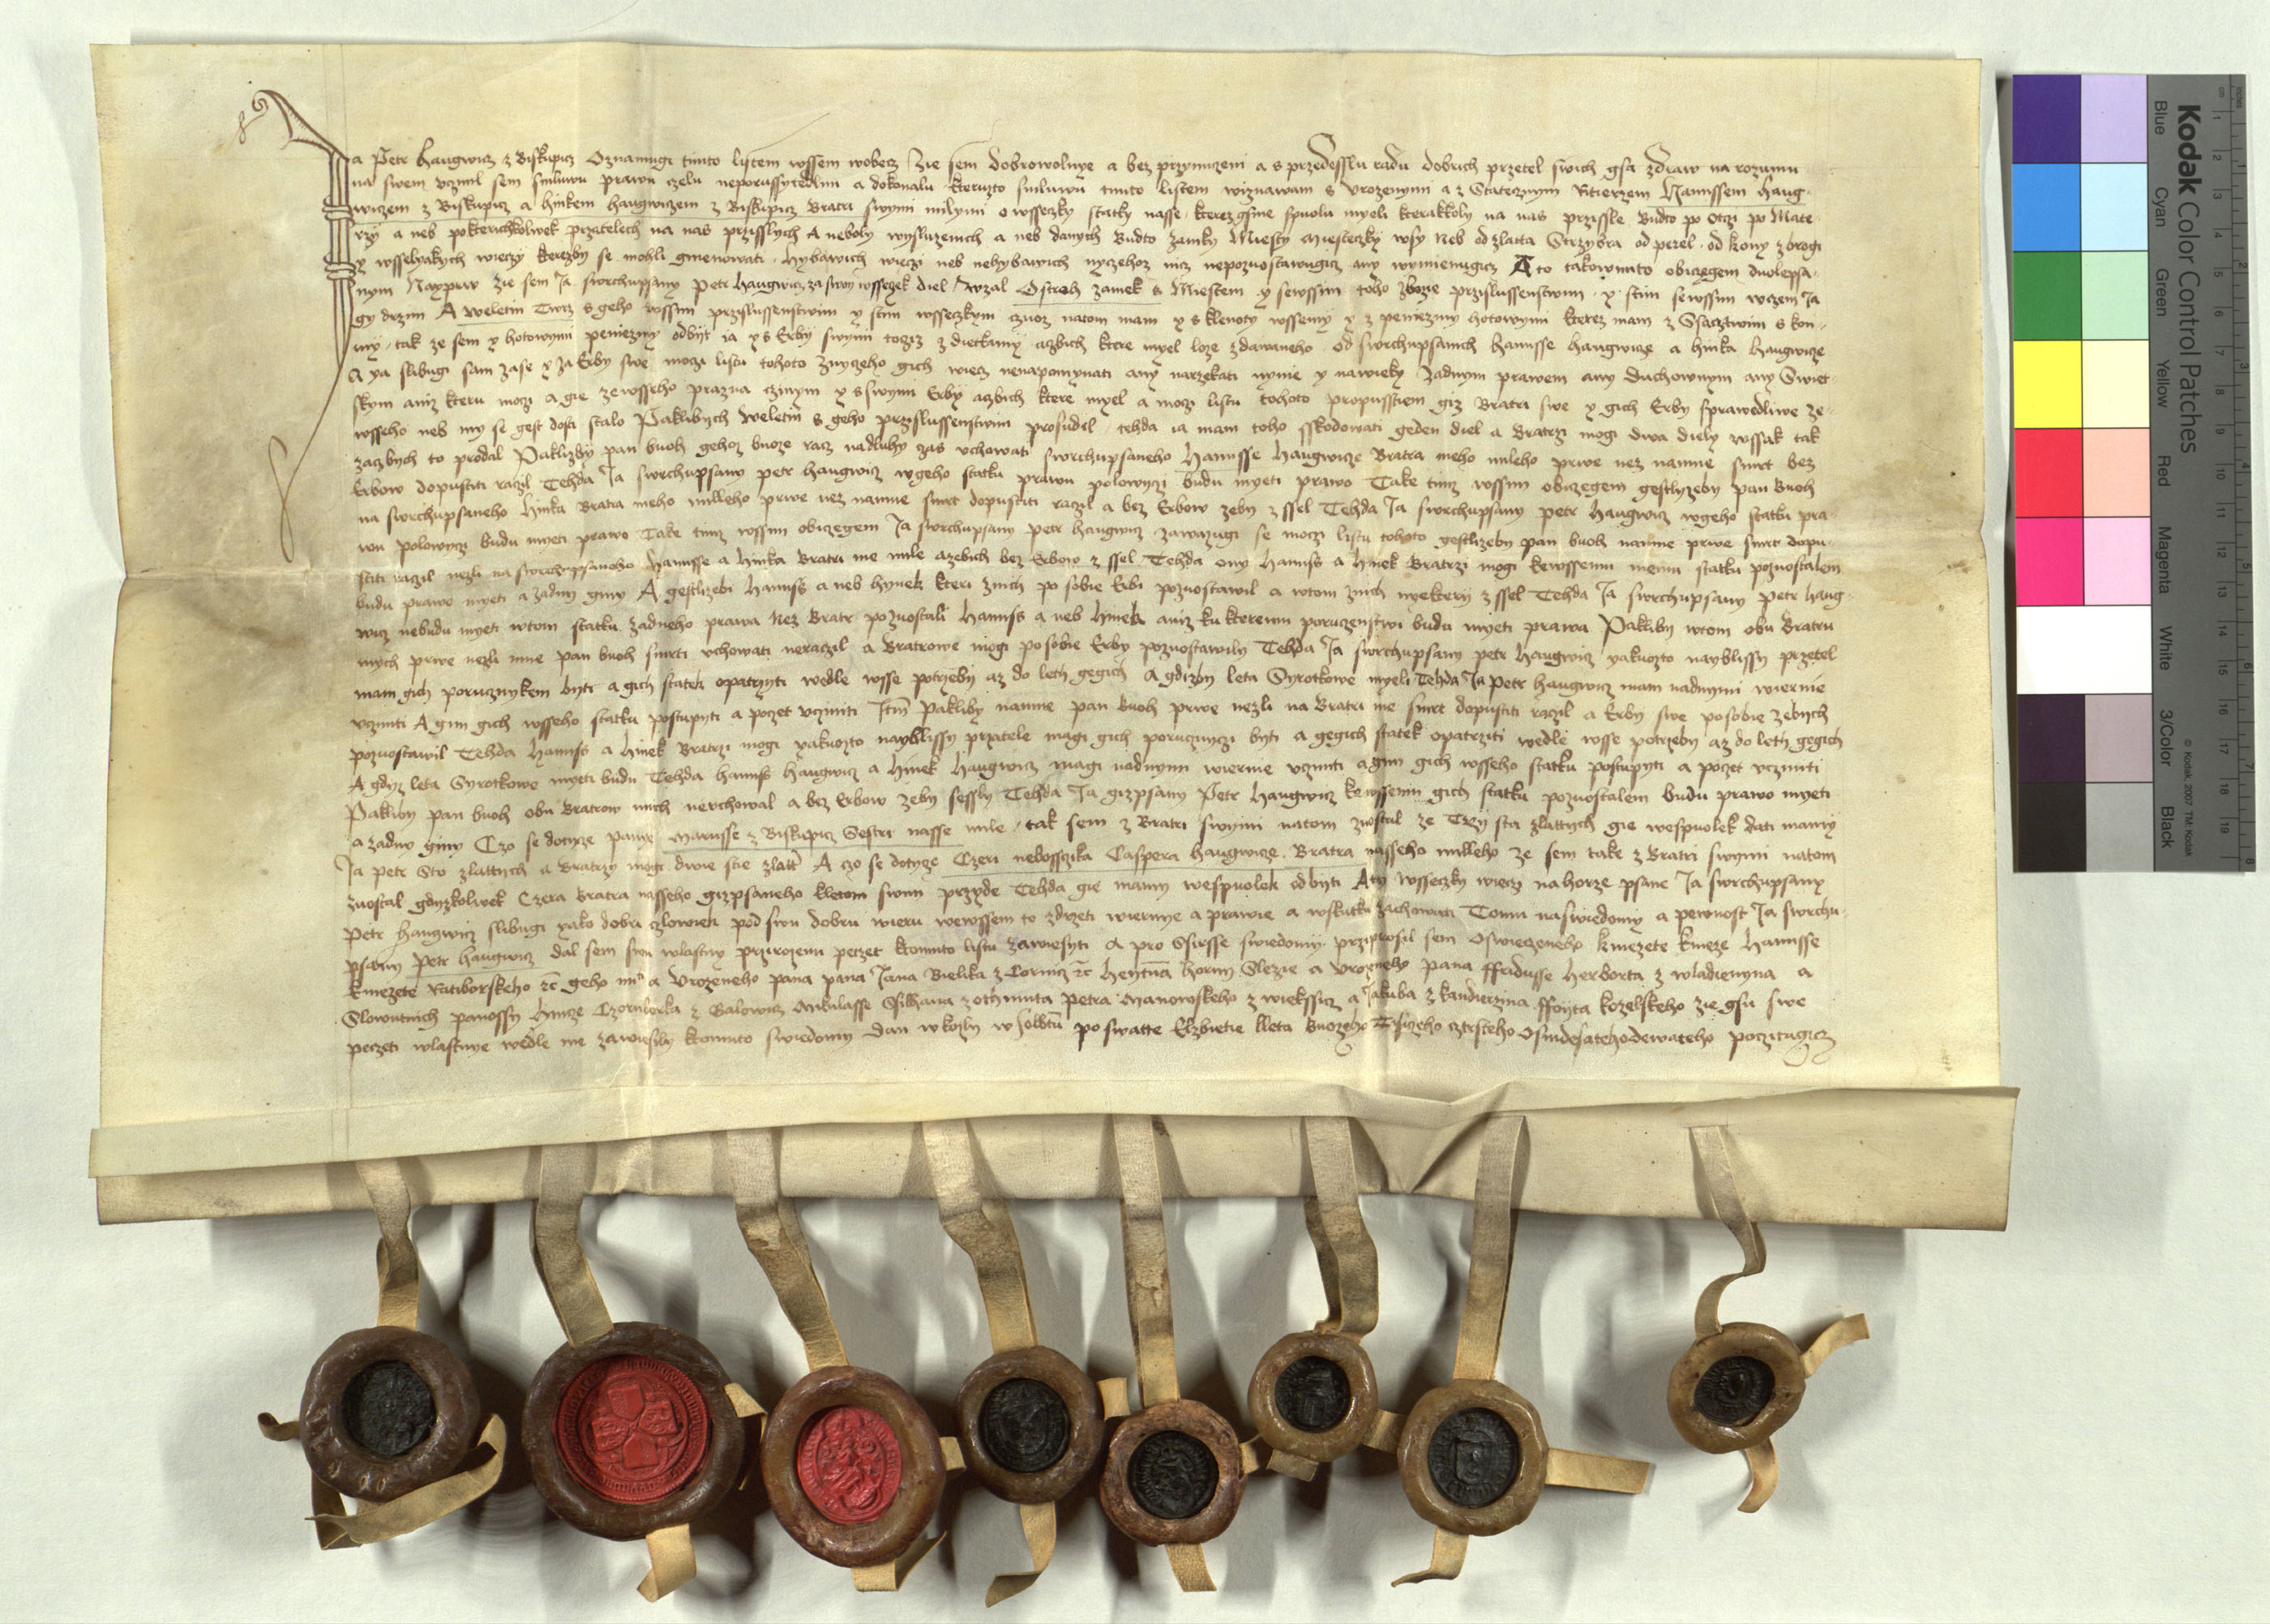 Ja Petr Haugwicz z Biskupicz Oznamugi timto listem wssem wobecz Zie sem dobrowolnye a bez przynuczeni a s przedesslu radu dobrich przetel swich gsa zdraw na rozumu
na swem vczinil sem smluwu prawu czelu neporussytedlnu a dokonalu kteruzto smluwu timto listem wiznawam s vrozenymi a z Statecznym Ritierzem Hanussem Haug-
wiczem z Biskupicz a hinkem haugwiczem z Biskupicz Bratri swymi milymi o wsseczky statky nasse kterez gsme spuolu myeli kterakkoly na nas przissle Budto po Otczi po Mate-
rzy a neb pokterichkolwek przatelech na nas przisslych A neboly wysluzenich a neb danych Budto zamky Miesty miesteczky wsy Neb od zlatta Strzybra od perel od kony zbrogi
y wsselyakych wieczy kterezby se mohli gmenowati hybawich wieczi neb nehybawich nyczehoz nicz nepozuostawugicz any wymienugicz A to takowimto obiczegem dnolepsa-
nym Nayprw zie sem Ja swrchupsany Petr Haugwicz za swoy wsseczek diel Wzal Ostroh zamek s Miestem y sewssim toho zbozie przislussenstwim y stim sewssim wczem Ja
gy drzim A Weletin Twrz s geho wssim przislussenstwim y stim wsseczkym czuoz natom mam y s klenoty wssemy y z peniezmy hotowymi kterez mam z Ssacztwim s kon-
my tak ze sem y hotowymi peniezmy odbyt ia y s Erby swymi toziz z dietkamy aczbich ktere myel loze zdawaneho od swrchupsanich hanusse haugwicze a hinka Haugwicze
A ya slibugi sam zase y za Erby swe moczi listu tohoto Znyczeho gich wiecz nenapomynati any narzekati nynie y nawieky zadnym prawem any Duchownym any Swiet-
skym aniz kteru moczi a gie zewsseho prazna czinym y s swymi Erby aczbich ktere myel a moczi listu tohoto propusstiem giz Bratri swe y gich Erby sprawedliwe ze-
wsseho neb my se gest dosti stalo Paklibych Weletin s geho przislussenstwim prosudil tehda ia mam toho sskodowati geden diel a Bratrzi mogi dwa diely wssak tak
zaczbych to prodal Paklizby pan buoh gehoz buoze racz nadluhy zas vchowati swrchupsaneho Hanusse Haugwicze Bratra meho mileho prwe nez namne smrt bez
Erbow dopustiti raczil Tehda Ja swrchupsany petr haugwicz wgeho statku prawu polowyczi budu myeti prawo Take timz wssim obiczegem gestlyzeby pan Buoh
na swrchupsaneho hinka Bratra meho milleho prwe nez namne smrt dopustiti raczil a bez Erbow zeby z ssel Tehda Ja swrchupsany petr haugwicz wgeho statku pra-
wu polowyczi budu myeti prawo Take timz wssim obiczegem Ja swrchupsany petr haugwicz zawazugi se moczi listu tohoto gestlizeby pan buoh namne prwe smrt dopu-
stiti raczil nezli na swrchupsaneho Hanusse a hinka Bratri me mile azebich bez Erbow z ssel Tehda ony Hanuss a hinek Bratrzi mogi kewssemu memu statku pozuostalem
budu prawo myeti a zadny giny A gestlizebi Hanuss a neb hynek kteri znich po sobie Erbi pozuostawil a wtom znich nyektery z ssel Tehda Ja swrchupsany petr haug-
wicz nebudu myeti wtom statku zadneho prawa Nez Bratr pozuostali Hanuss a neb hinek aniz kukteremu poruczenstwi budu myeti prawa Pakliby wtom obu Bratru
mych prwe nezli mne pan buoh smrti vchowati neraczil a Bratrowe mogi posobie Erby pozuostawily Tehda Ja swrchupsany petr haugwicz yakuozto nayblissy przetel
mam gich porucznykem byti a gich statek opatrzyti wedle wsse potrzeby az do leth gegich A gdizby leta Syrotkowe myeli Tehda Ja petr haugwicz mam nadnymi wiernie
vcziniti A gim gich wsseho statku postupyti a poczet vcziniti Itm Pakliby namne pan buoh prwe nezli na Bratri me smrt dopustiti raczil a Erby swe posobie zebych
pozuostawil Tehda Hanuss a hinek Bratrzi mogi yakuozto nayblissy przatele magi gich poruczniczi byti a gegich statek opatrziti wedle wsse potrzeby az do leth gegich
A gdyz leta Syrotkowe myeti budu Tehda hanuss haugwicz a hinek haugwicz magi nadnymi wiernie vcziniti a gim gich wsseho statku postupyti a poczet vcziniti
Pakliby pan buoh obu Bratrow mich nevchowal a bez Erbow zeby sessly Tehda Ja gizpsany Petr Haugwicz kewssemu gich statku pozuostalem budu prawo myeti
a zadny giny Czo se dotycze panny Marusse z Biskupicz Sestri nasse mile tak sem z Bratri swymi natom zuostal ze Trzy sta zlattych gie wespuolek dati mamy
Ja petr Sto zlattych a Bratrzy mogi dwie stie zlatt A czo se dotycze Czeri nebosscika Caspera haugwicze Bratra nasseho milleho ze sem take z Bratri swymi natom
zuostal gdyzkolwek Czera Bratra nasseho gizpsaneho kletom swim przyde Tehda gie mamy wespuolek odbyti A ty wsseczky wieczi nahorze psane Ja swrchupsany
Petr haugwicz slibugi yako dobri czlowiek pod swu dobru wieru wewssem to zdrzeti wiernye a prawie a wskutku zachowati Tomu naswiedomy a pewnost Ja swrchu-
psany petr haugwicz dal sem swu wlastny przirozenu peczet ktomuto listu zawiesyti A pro Ssirsse swiedomy przyprosil sem Oswieczeneho kniezete knieze Hanusse
kniezete Ratiborskeho etc geho mti a vrozeneho pana pana Jana Bielika z Cornicz etc heytmana horny Slezie a vrozneho pana ffridusse herborta z wladienyna a
Slowutnich panossy hincze Czornberka z Galowicz Mikulasse Ssilhana z othmuta petra Manowskeho z wiekssicz a Jakuba z kandierzina ffoyta kozelskeho zie gsu swe
peczeti wlastnye wedle me zawiesily ktomuto swiedomy Dan w kozly w sobotu po swatte Elzbietie lleta buozyho Tisiczeho cztrsteho Osmdesatehodewateho pocziatugicz